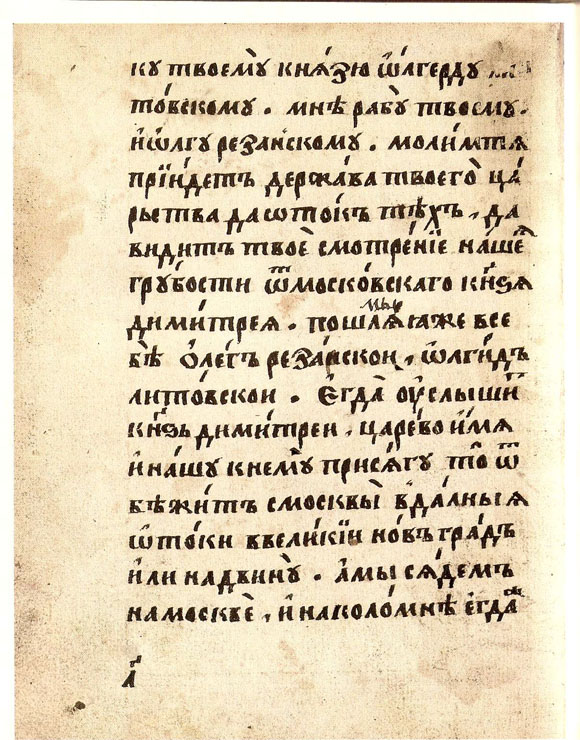 кꙋ твоемꙋ̀ кнѧ́зю ѿлгердꙋ ли
то́вскомꙋ . мнѣ рабꙋ̀ твоемꙋ .
и҆ ѿлгꙋ резан́скомꙋ . моли́мтѧ
прїи́детъ держа́ва твоего̀ ца́
рьства да ѿто́къ тѣ́хъ , да
видитъ твоѐ смотре́нїе на́шеѧ
грꙋ́бости ѿ моско́вскаго кн҃зѧ
дими́трея . пошлѧ́ мы́ же все
бѣ ѻ҆ле́гъ реза́искои , ѿлги́дъ
лито́вскои . Е҆гда̀ оу҆слыши́т
кн҃зь дими́трeи , царе́во и҆́мѧ
и҆ на́шꙋ к немꙋ̀ прися́гꙋ то̀ ѿ
бѣжи́тъ с москвы̀ в да́лныѧ
ѿто́ки в вели́кїи но́въ гра́дъ
и҆́ли на двинꙋ̀ . а҆ мы сѧ́демъ
на москвѐ , и҆ на коло́мнѣ е҆гда̀